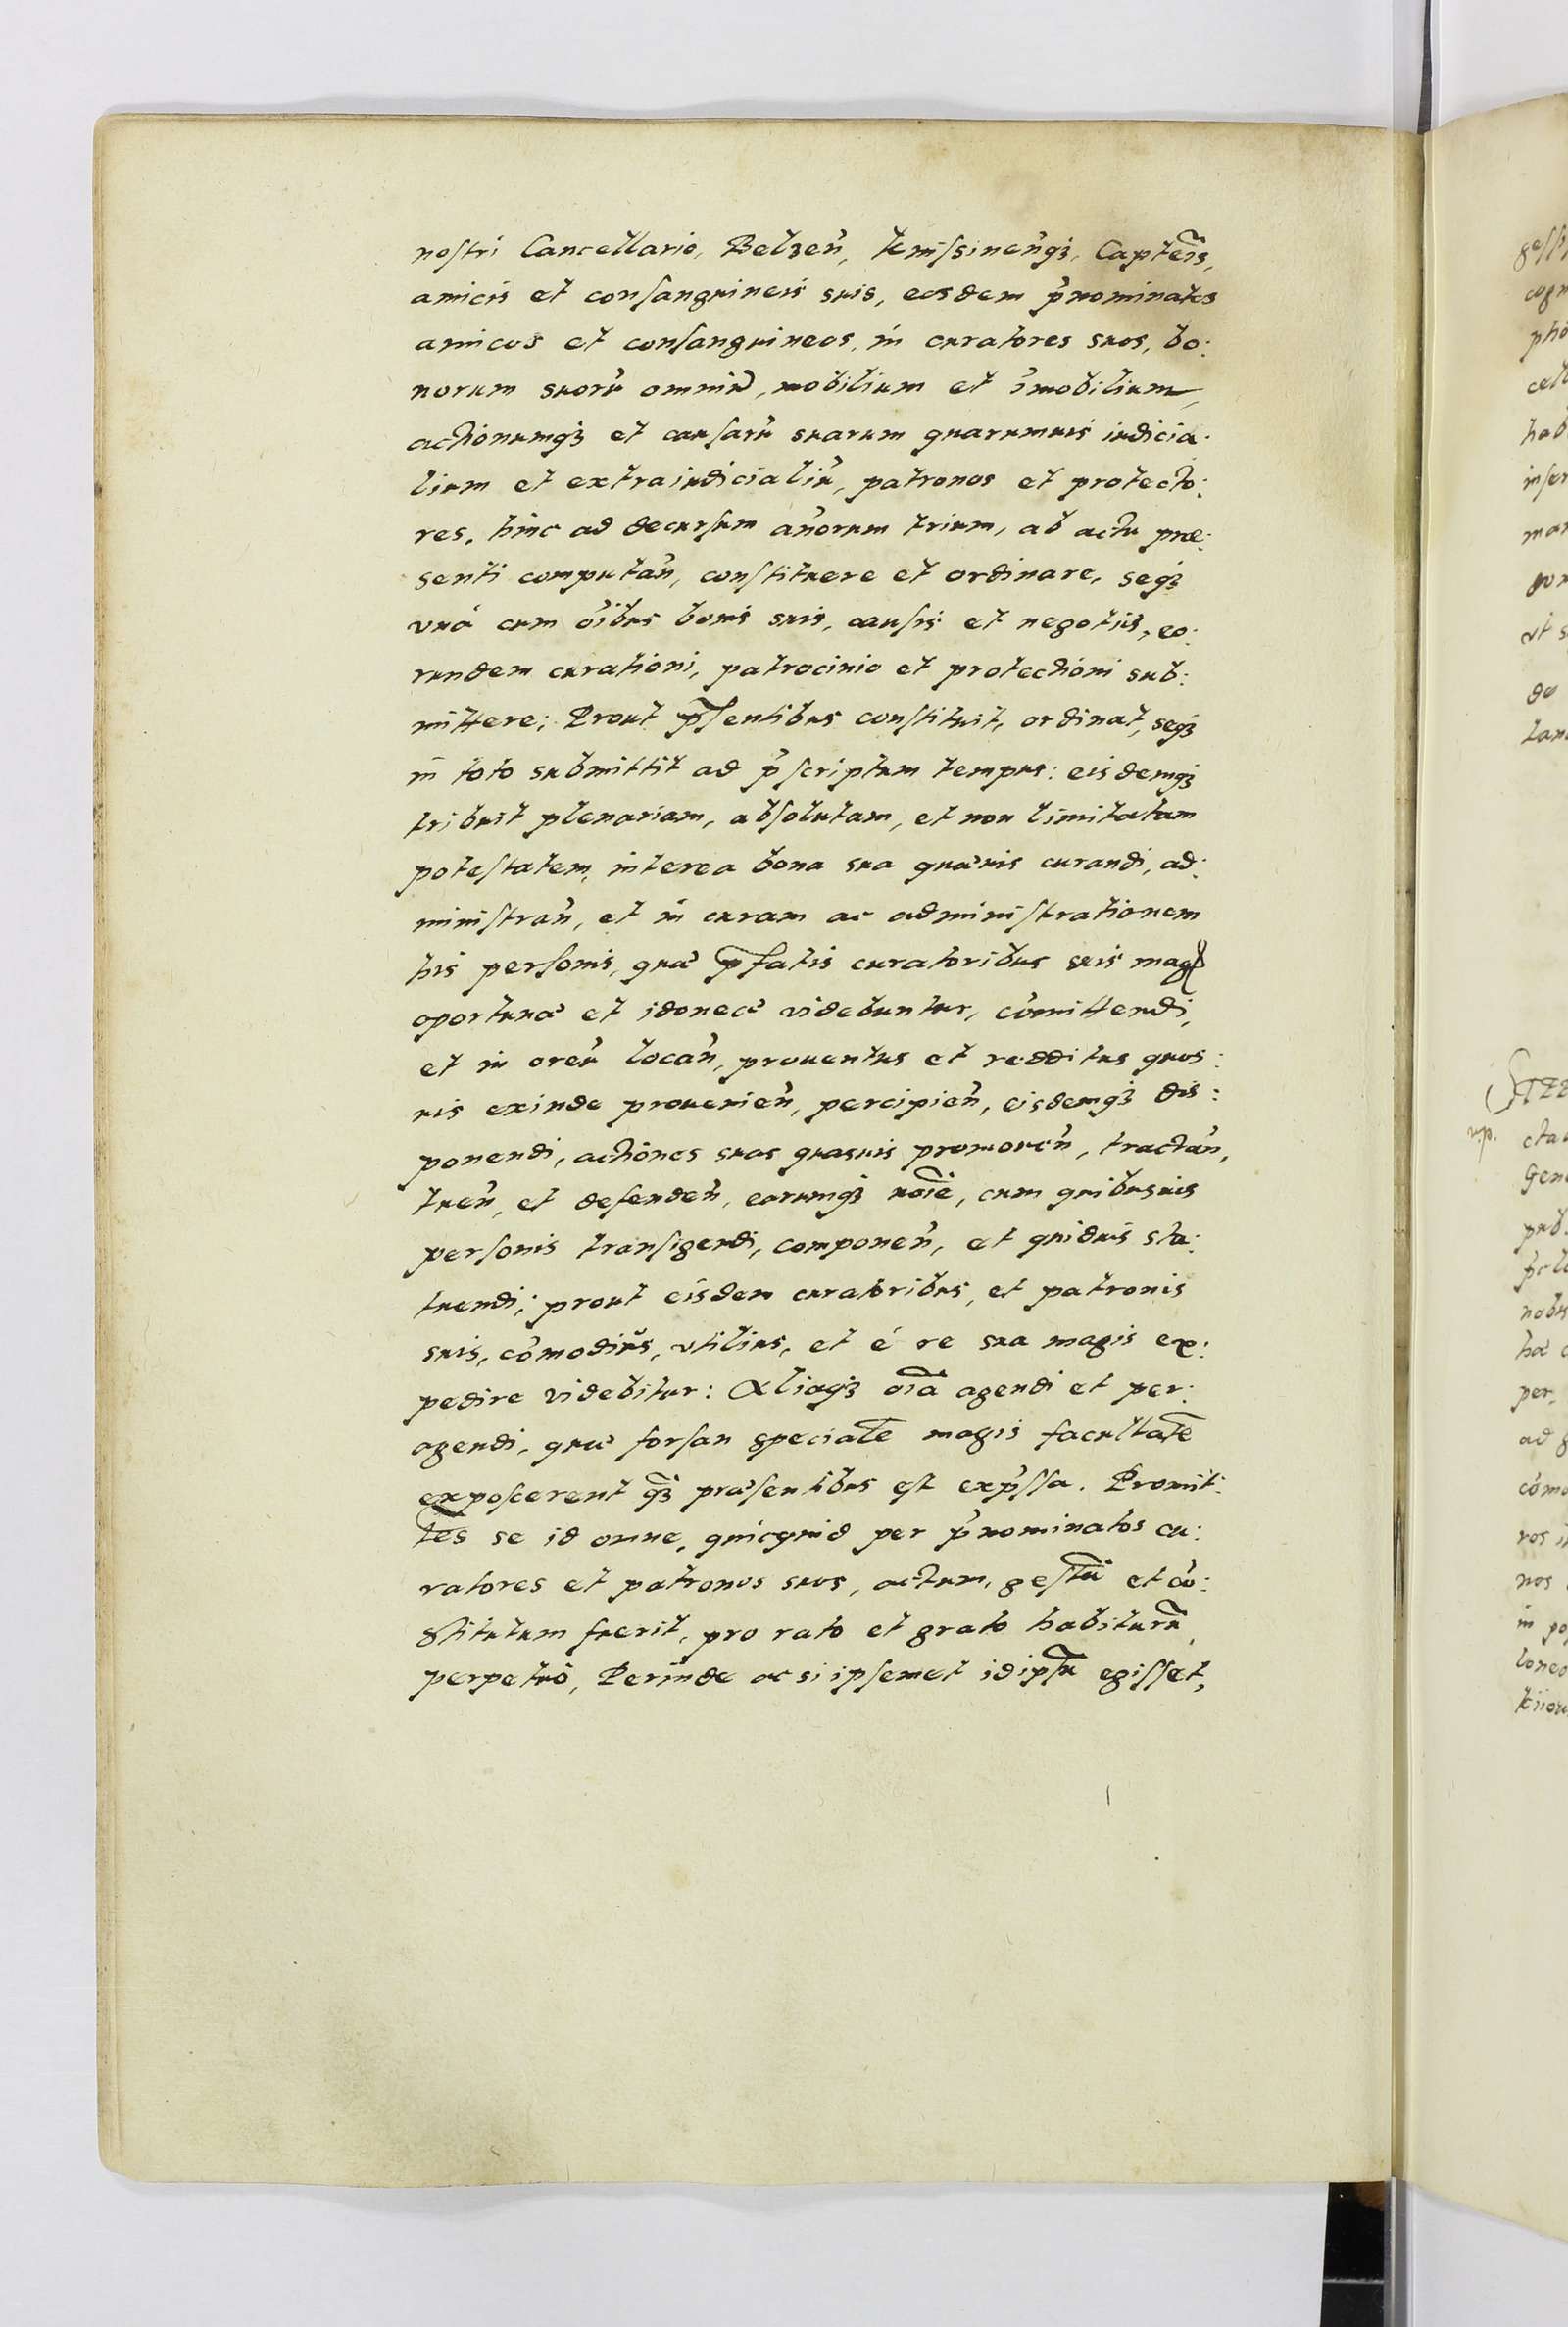 nostri Cancellario, Belzen̄, Knissinen̄q₃, Capiteīs,
amicis et consanguineis suis, eosdem p̄nominatos
amicos et consanguineos, in curatores suos, bo:
norum suorū omniū, mobilium et īmobilium,
actionumq₃ et causarū suarum quarumuis iudicia:
lium et extraiudicialiū, patronos et protecto:
res, hinc ad decursum an̄orum trium, ab actu præ:
senti computan̄, constituere et ordinare, seq₃
vnà cum oībus bonis suis, causis et negotiis, eo:
rundem curationi, patrocinio et protectioni sub:
mittere; Prout p̄sentibus constituit, ordinat, seq₃
in toto submittit ad p̄scriptum tempus: eisdemq₃
tribuit plenariam, absolutam, et non limitatam
potestatem, interea bona sua quæuis curandi, ad:
ministran̄, et in curam ac administrationem
his personis, quæ p̄fatis curatoribus suis mag̃
oportunæ et idoneæ videbuntur, com̄ittendi,
et in oren̄ locan̄, prouentus et redditus quos:
uis exinde prouenien̄, percipien̄, eisdemq₃ dis:
ponendi, actiones suas quasuis promouen̄, tractan̄,
tuen̄, et defenden̄, earumq₃ noīe, cum quibusuis
personis transigendi, componen̄, et quiduis sta:
tuendi; prout eisdem curatoribus, et patronis
suis, com̄odiùs, vtilius, et è re sua magis ex:
pedire videbitur: Aliaq₃ oīa agendi et per:
agendi, quæ forsan specialē magis facultatē
exposcerent q̄₃ præsentibus est exp̄ssa. Promit:
tēs se id omne, quicquid per p̄nominatos cu:
ratores et patronos suos, actum, gestū et cō:
stitutum fuerit, pro rato et grato habiturū,
perpetuò, Perinde ac si ipsemet idipsū egisset,